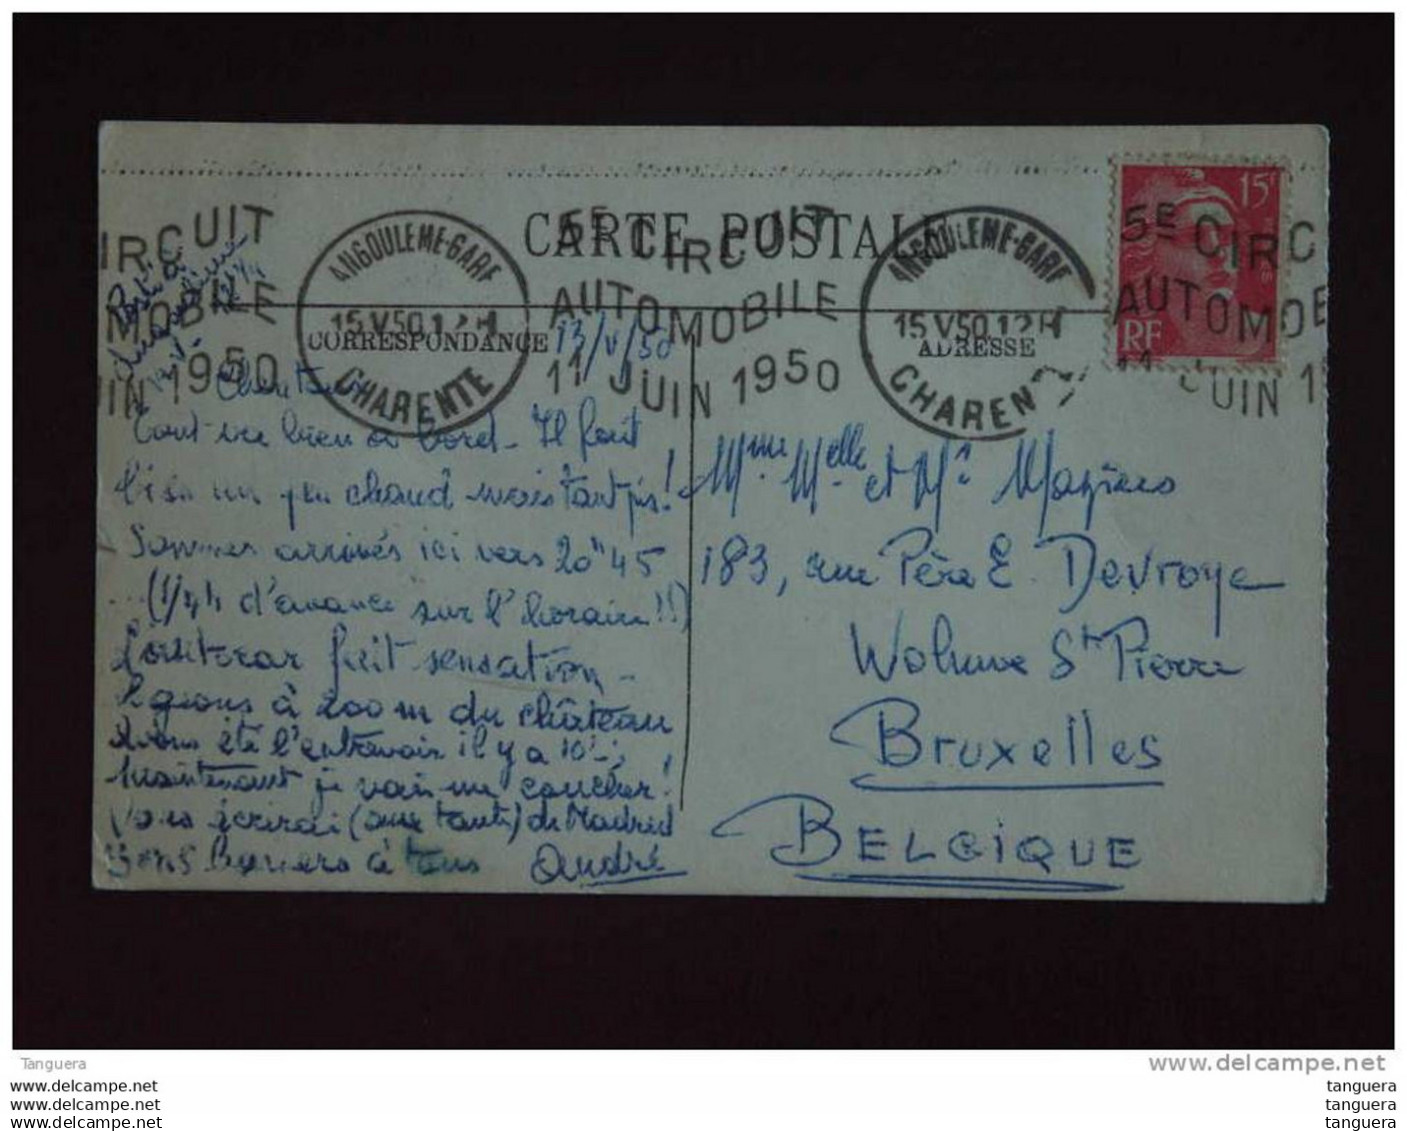 CARTE POSTALE
CORRESPONDANCE
ADRESSE
15F
RF
5E CIRCUIT
AUTOMOBILE
11 JUIN 1950
ANGOULEME-GARE
15 V 50 12H
CHARENTE
5E CIRCUIT
AUTOMOBILE
11 JUIN 1950
ANGOULEME-GARE
15 V 50 12H
CHARENTE
5E CIRC
AUTOMOB
11 JUIN 1
IRCUIT
MOBILE
IN 1950
Posté à
Angoulême
13/V/50
Tout va bien à bord - Il fait
bien un peu chaud mais tant pis!
Sommes arrivés ici vers 20h45
... (1/4h d'avance sur l'horaire!!)
fait sensation -
à 200m du château
il y a 10
Maintenant je vais me coucher!
Vous écrirai (une carte) de Madrid
Bons baisers à tous André
Mme Melle et Mr Maziers
183, rue Père E. Devroye
Woluwe St Pierre
Bruxelles
BELGIQUE
Tanguera
delcampe.net
delcampe.net
delcampe.net
delcampe.net
tanguera
tanguera
tanguera